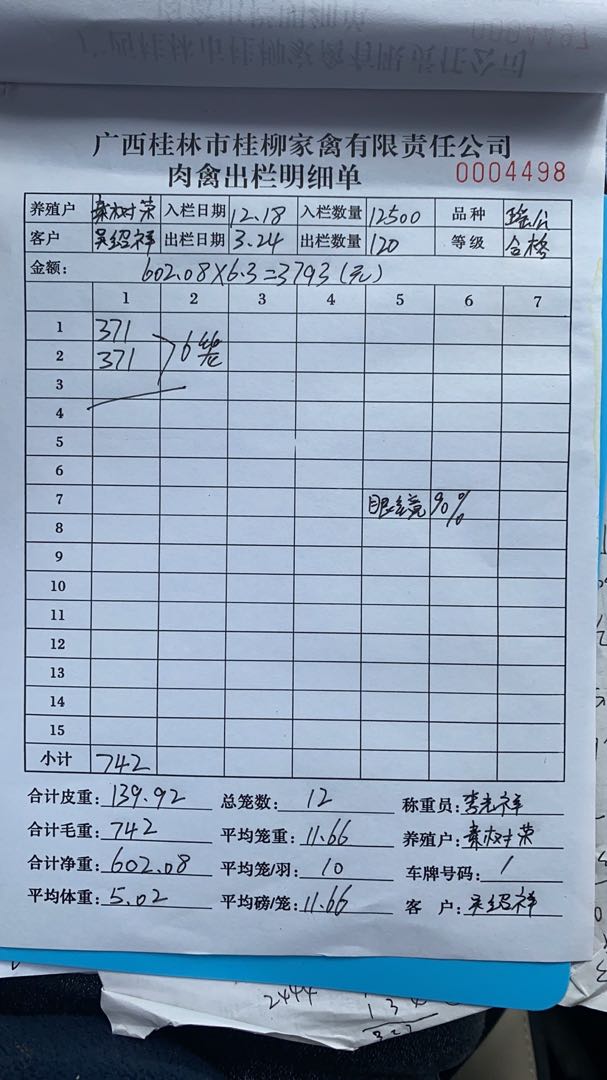 广西桂林市桂柳家禽有限责任公司
肉禽出栏明细单 0004498
养殖户 秦树荣 入栏日期 12.18 入栏数量 12500 品种 瑶公
客户 吴绍祥 出栏日期 3.24 出栏数量 120 等级 合格
金额: 602.08×6.3=3793(元)
1 2 3 4 5 6 7
1 371
2 371 6笼
3
4
5
6
7 眼镜90%
8
9
10
11
12
13
14
15
小计 742
合计皮重: 139.92 总笼数: 12 称重员: 李光祥
合计毛重: 742 平均笼重: 11.66 养殖户: 秦树荣
合计净重: 602.08 平均笼/羽: 10 车牌号码: /
平均体重: 5.02 平均磅/笼: 11.66 客户: 吴绍祥
2444